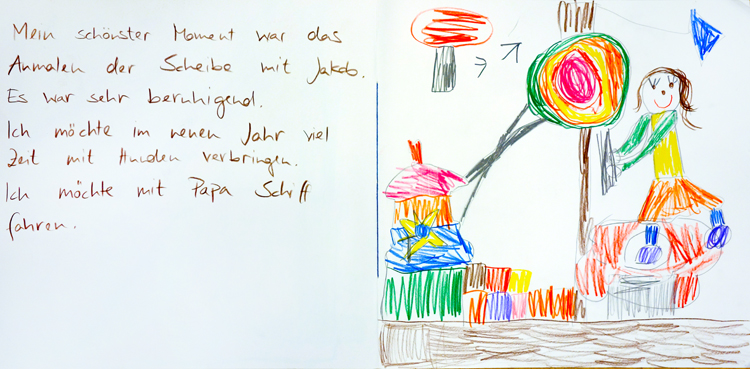 Mein schönster Moment war das
Anmalen der Scheibe mit Jakob.
Es war sehr beruhigend.
Ich möchte im neuen Jahr viel
Zeit mit Hunden verbringen.
Ich möchte mit Papa Schiff
fahren.